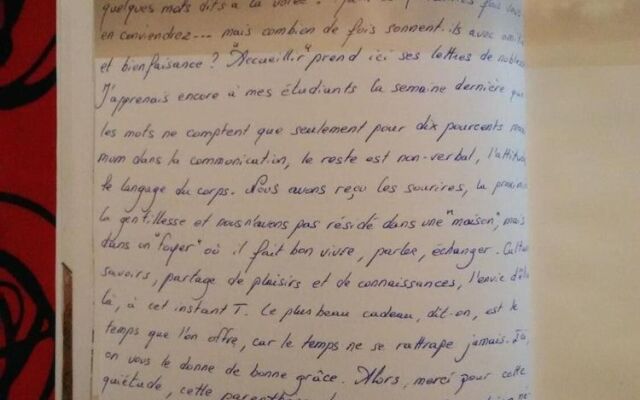 quelques mots dits à la
en conviendrez... mais combien de fois sonnent-ils avec
et bienfaisance ? "Accueillir" prend ici ses lettres de
J'apprenais encore à mes étudiants la semaine dernière que
les mots ne comptent que seulement pour dix pourcents
mum dans la communication, le reste est non-verbal, l'attitude
le langage du corps. Nous avons reçu les sourires, la
la gentillesse et nous n'avons pas résidé dans une "maison", mais
dans un "foyer" où il fait bon vivre, parler, échanger.
savoirs, partage de plaisirs et de connaissances, l'envie d'
là, à cet instant T. Le plus beau cadeau, dit-on, est le
temps que l'on offre, car le temps ne se rattrape jamais. Ici,
on vous le donne de bonne grâce. Alors, merci pour cette
quiétude, cette